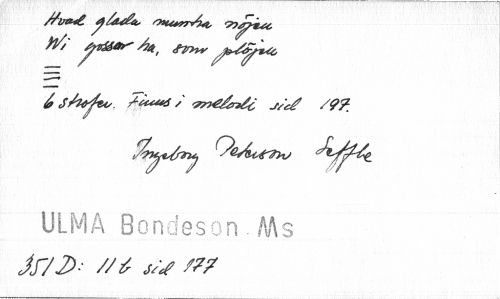 Hvad glada muntra nöjen
Vi gossar ha, som plöjen
6 strofer. Finns i melodi sid 197.
Ingeborg Peterson Seffle
ULMA Bondeson. Ms
351 D: 11 b sid 177